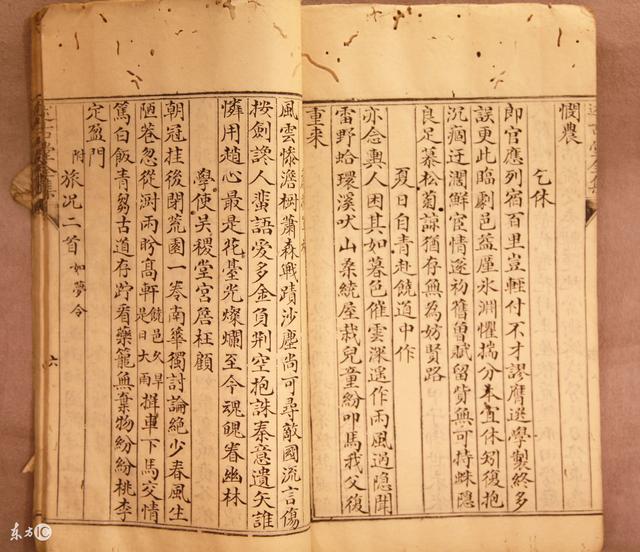 憫農
乞休
郎官應列宿百里豈輕付不才謬膺選學製終多
誤更此臨劇邑益厪氷淵懼揣分本宜休矧復抱
沉痼迂濶鮮宦情遂初舊曾賦留貲無可持蛛隱
良足慕松菊諒猶存無為妨賢路
夏日自青赴饒道中作
亦念輿人困其如暮色催雲深遙作雨風過隱聞
雷野蛤環溪吠山桑繞屋栽兒童紛叩馬我父復
重來
風雲慘澹樹蕭森戰蹟沙塵尚可尋敵國流言傷
按劍讒人蜚語愛多金負荆空抱誅秦意遺矢誰
憐用趙心最是花臺光燦爛至今魂魄眷幽林
學使吴稷堂宮詹枉顧
朝冠挂後閉荒園一卷南華獨討論絶少春風生
陋巷忽從澍雨盼髙軒饒邑久旱是日大雨揖車下馬交情
篤白飯青芻古道存跧看藥籠無棄物紛紛桃李
定盈門
附旅况二首如夢令
六
东方IC